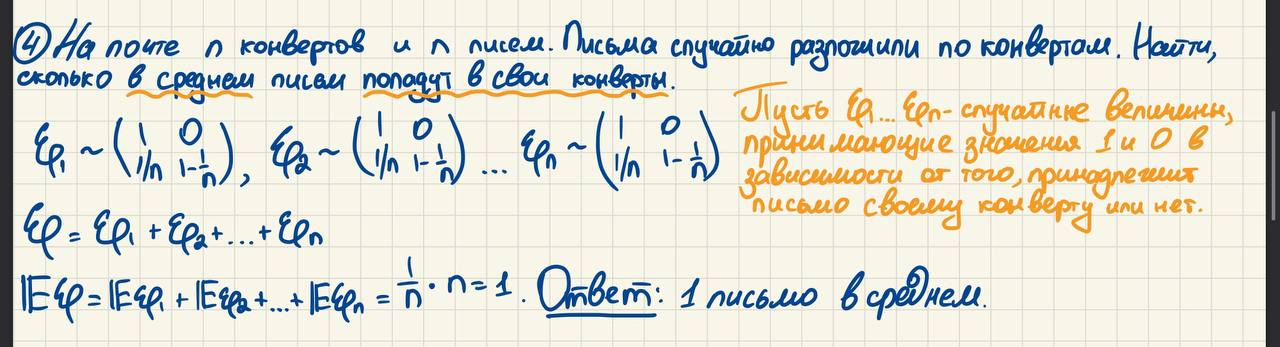 ④ На почте n конвертов и n писем. Письма случайно разложили по конвертам. Найти,
сколько в среднем писем попадут в свои конверты.
ξ₁ ~ (1 0; 1/n 1-1/n), ξ₂ ~ (1 0; 1/n 1-1/n) ... ξn ~ (1 0; 1/n 1-1/n)
Пусть ξ₁...ξn - случайные величины,
принимающие значения 1 и 0 в
зависимости от того, принадлежит
письмо своему конверту или нет.
ξ = ξ₁ + ξ₂ + ... + ξn
𝔼ξ = 𝔼ξ₁ + 𝔼ξ₂ + ... + 𝔼ξn = 1/n · n = 1. Ответ: 1 письмо в среднем.